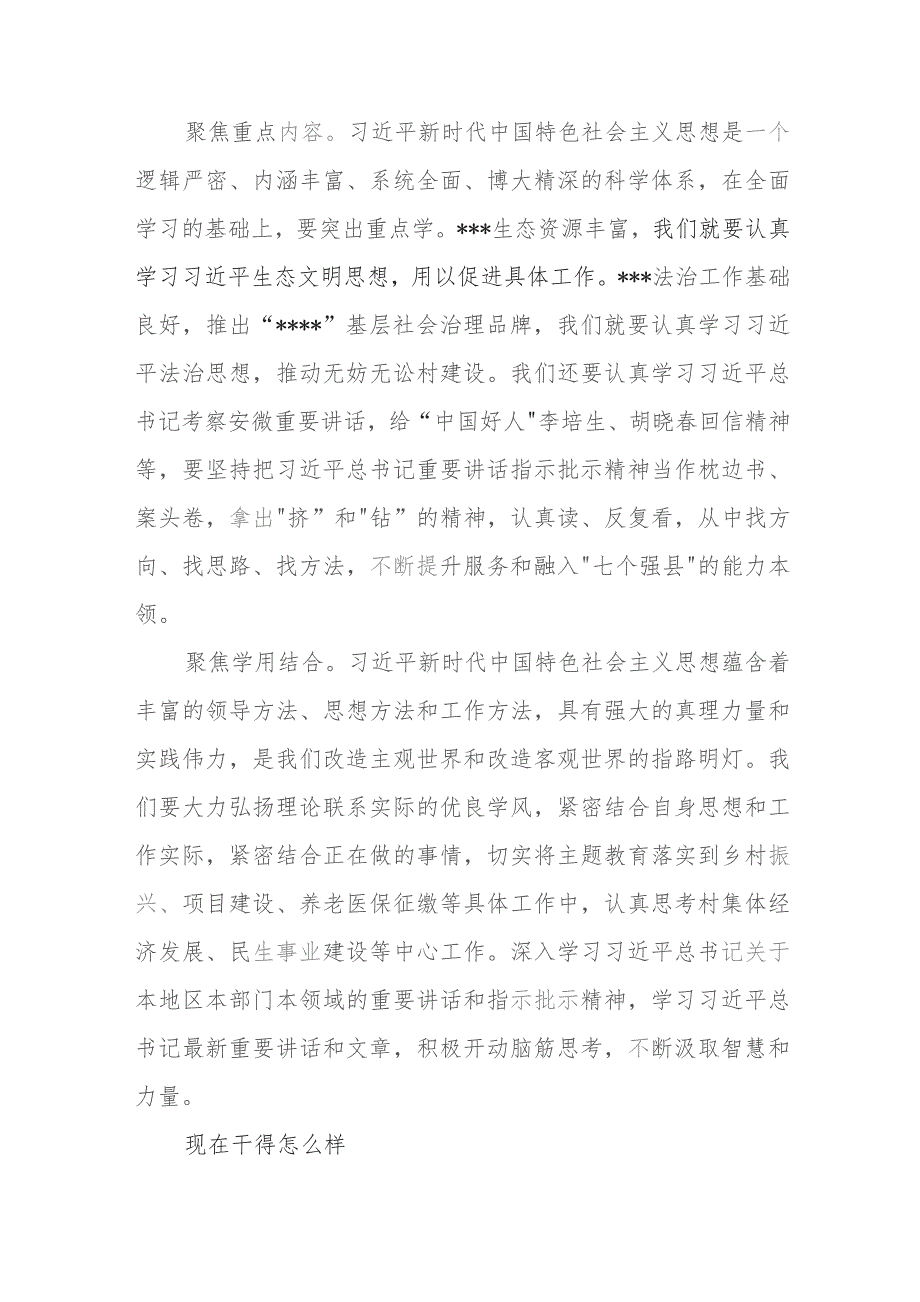 聚焦重点内容。习近平新时代中国特色社会主义思想是一个
逻辑严密、内涵丰富、系统全面、博大精深的科学体系，在全面
学习的基础上，要突出重点学。***生态资源丰富，我们就要认真
学习习近平生态文明思想，用以促进具体工作。***法治工作基础
良好，推出“****”基层社会治理品牌，我们就要认真学习习近
平法治思想，推动无妨无讼村建设。我们还要认真学习习近平总
书记考察安微重要讲话，给“中国好人"李培生、胡晓春回信精神
等，要坚持把习近平总书记重要讲话指示批示精神当作枕边书、
案头卷，拿出"挤”和"钻”的精神，认真读、反复看，从中找方
向、找思路、找方法，不断提升服务和融入"七个强县"的能力本
领。
聚焦学用结合。习近平新时代中国特色社会主义思想蕴含着
丰富的领导方法、思想方法和工作方法，具有强大的真理力量和
实践伟力，是我们改造主观世界和改造客观世界的指路明灯。我
们要大力弘扬理论联系实际的优良学风，紧密结合自身思想和工
作实际，紧密结合正在做的事情，切实将主题教育落实到乡村振
兴、项目建设、养老医保征缴等具体工作中，认真思考村集体经
济发展、民生事业建设等中心工作。深入学习习近平总书记关于
本地区本部门本领域的重要讲话和指示批示精神，学习习近平总
书记最新重要讲话和文章，积极开动脑筋思考，不断汲取智慧和
力量。
现在干得怎么样